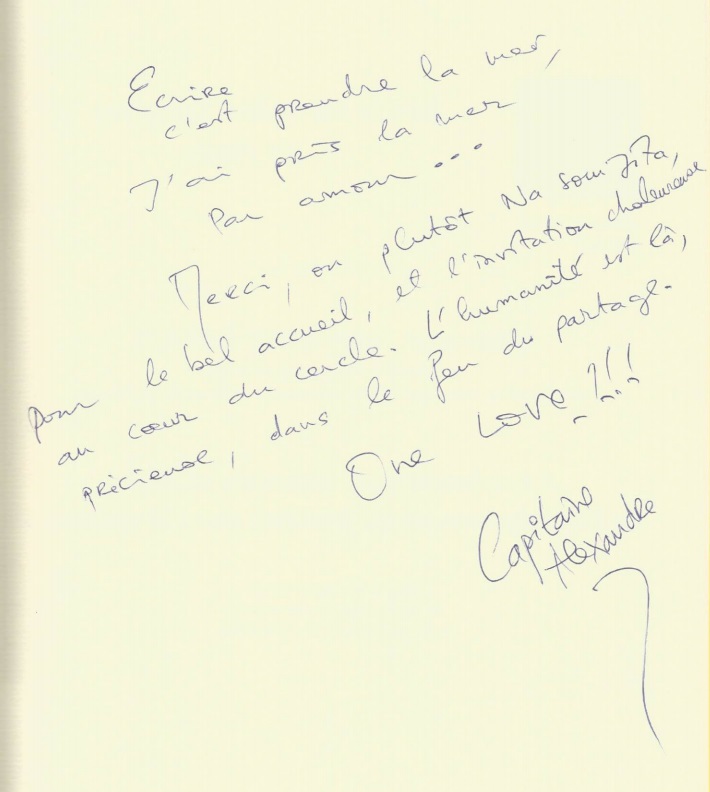 Ecrire
c'est prendre la mer,
J'ai pris la mer
Par amour...
Merci, ou plutôt Na som jita,
pour le bel accueil, et l'invitation chaleureuse
au cœur du cercle. L'humanité est là,
précieuse, dans le feu du partage.
One Love !!!
Capitaine
Alexandre